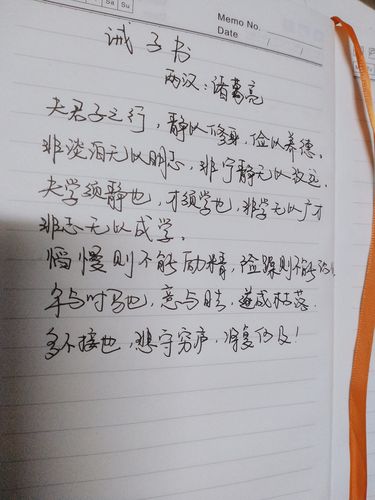 Sa Su
Memo No.
Date / /
诫子书
两汉：诸葛亮
夫君子之行，静以修身，俭以养德。
非淡泊无以明志，非宁静无以致远。
夫学须静也，才须学也，非学无以广才
非志无以成学。
慆慢则不能励精，险躁则不能治
年与时马也，意与日去，遂成枯落，
多不接也，悲守穷庐，将复何及！